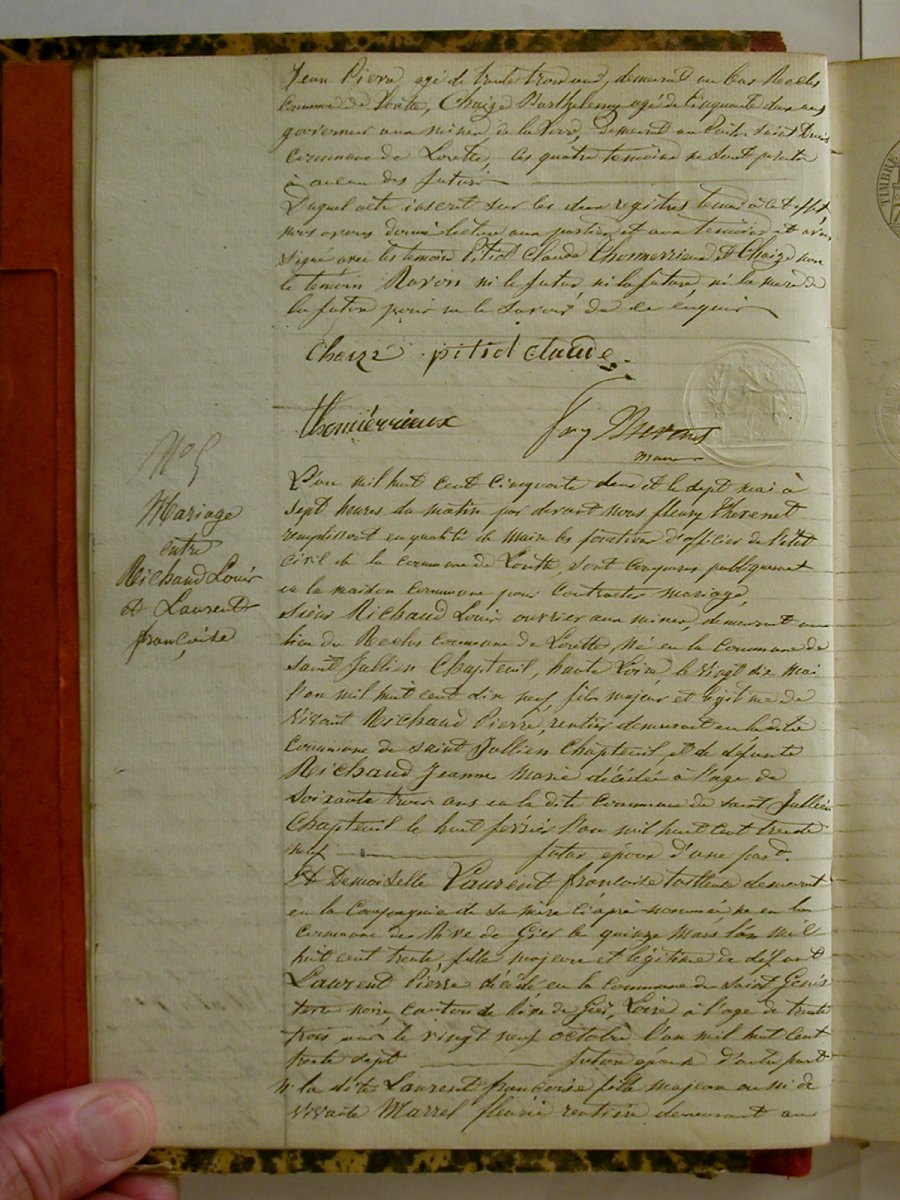 Jean Pierre agé de trente trois ans, demeurant au bas Reclus
Commune de Lorette, Chaize Barthelemy agé de Cinquante deux ans
gouverneur aux mines de la Loire, Demeurant au Puits Saint Denis
Commune de Lorette, les quatre temoins ne sont parents
à aucun des futurs
Duquel acte inscrit sur les deux registres tenus à cet effet
nous avons donné lecture aux parties et aux temoins et avons
signé avec les temoins Pitiot Claude Thomerrieux Et Chaize non
le temoin Ravon ni le futur ni la future, ni la mere de
la future pour ne le savoir de ce enquis
Chaize pitiot claude
thomiérrieux
fry Thevenet
maire
No 5
Mariage
entre
Richaud Louis
et Laurent
françoise
L'an mil huit cent Cinquante deux et le sept mai à
sept heures du matin par devant nous fleury Thevenet
remplissant en qualité de maire les fonctions d'officier de l'état
civil de la commune de Lorette, sont comparus publiquement
en la maison commune pour Contracter mariage,
Sieur Richaud Louis ouvrier aux mines, demeurant au
lieu du Reclus commune de Lorette, Né en la commune de
Saint Jullien Chapteuil, haute Loire, le vingt dix mai
l'an mil huit cent dix neuf, fils majeur et légitime de
vivant Richaud Pierre, rentier demeurant en la dite
Commune de saint Jullien Chapteuil, et de défunte
Reichaud Jeanne Marie décédée à l'age de
soixante trois ans en la dite commune de saint Jullien
Chapteuil le huit février l'an mil huit cent trente
neuf futur époux d'une part.
Et Demoiselle Laurent françoise tailleuse demeurant
en la Compagnie de sa mère ci après nommée, née en la
Commune de Rive de Gier le quinze Mars l'an mil
huit cent trente, fille majeure et légitime de défunt
Laurent Pierre décédé en la commune de saint Genis
terre noire, canton de Rive de Gier, Loire à l'age de trente
trois ans le vingt neuf octobre l'an mil huit cent
trente sept future épouse d'autre part
la dite Laurent françoise fille majeure de
vivante Marrel fleurie rentière demeurant au